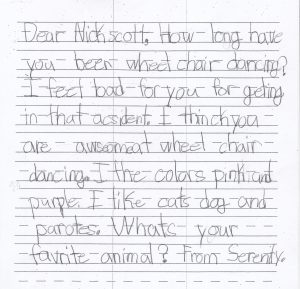 Dear Nickscott. How long have
you been wheel chair dancing?
I feel bad for you for geting
in that acsident. I thinch you
are awsomeat wheel chair
dancing. I the colors pink and
purple. I like cats dog and
parotes. Whats your
favrite animal? From Serenity.